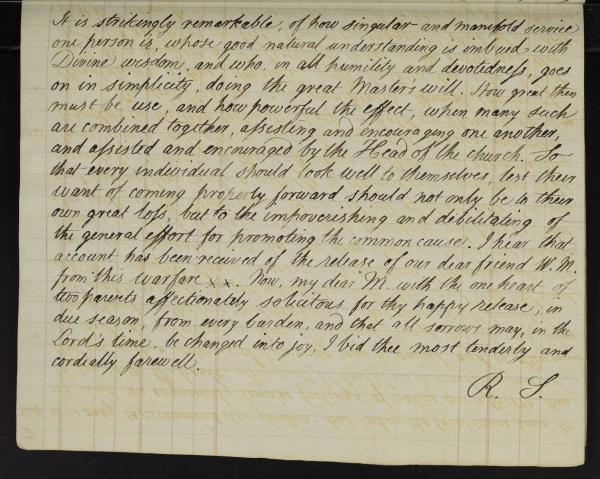 It is strikingly remarkable, of how singular and manifold service
one person is, whose good natural understanding is imbued with
Divine wisdom, and who, in all humility and devotedness, goes
on in simplicity, doing the great Master's will. How great then
must be use, and how powerful the effect, when many such
are combined together, assisting and encouraging one another,
and assisted and encouraged by the Head of the church. So
that every individual should look well to themselves, lest their
want of coming properly forward should not only be to their
own great loss, but to the impoverishing and debilitating of
the general effort for promoting the common cause. I hear that
account has been received of the release of our dear friend W. M.
from this warfare x x. Now, my dear M. with the one heart of
two parents affectionately solicitous for thy happy release, in
due season, from every burden, and that all sorrows may, in the
Lord's time, be changed into joy, I bid thee most tenderly and
cordially farewell.
R. S.